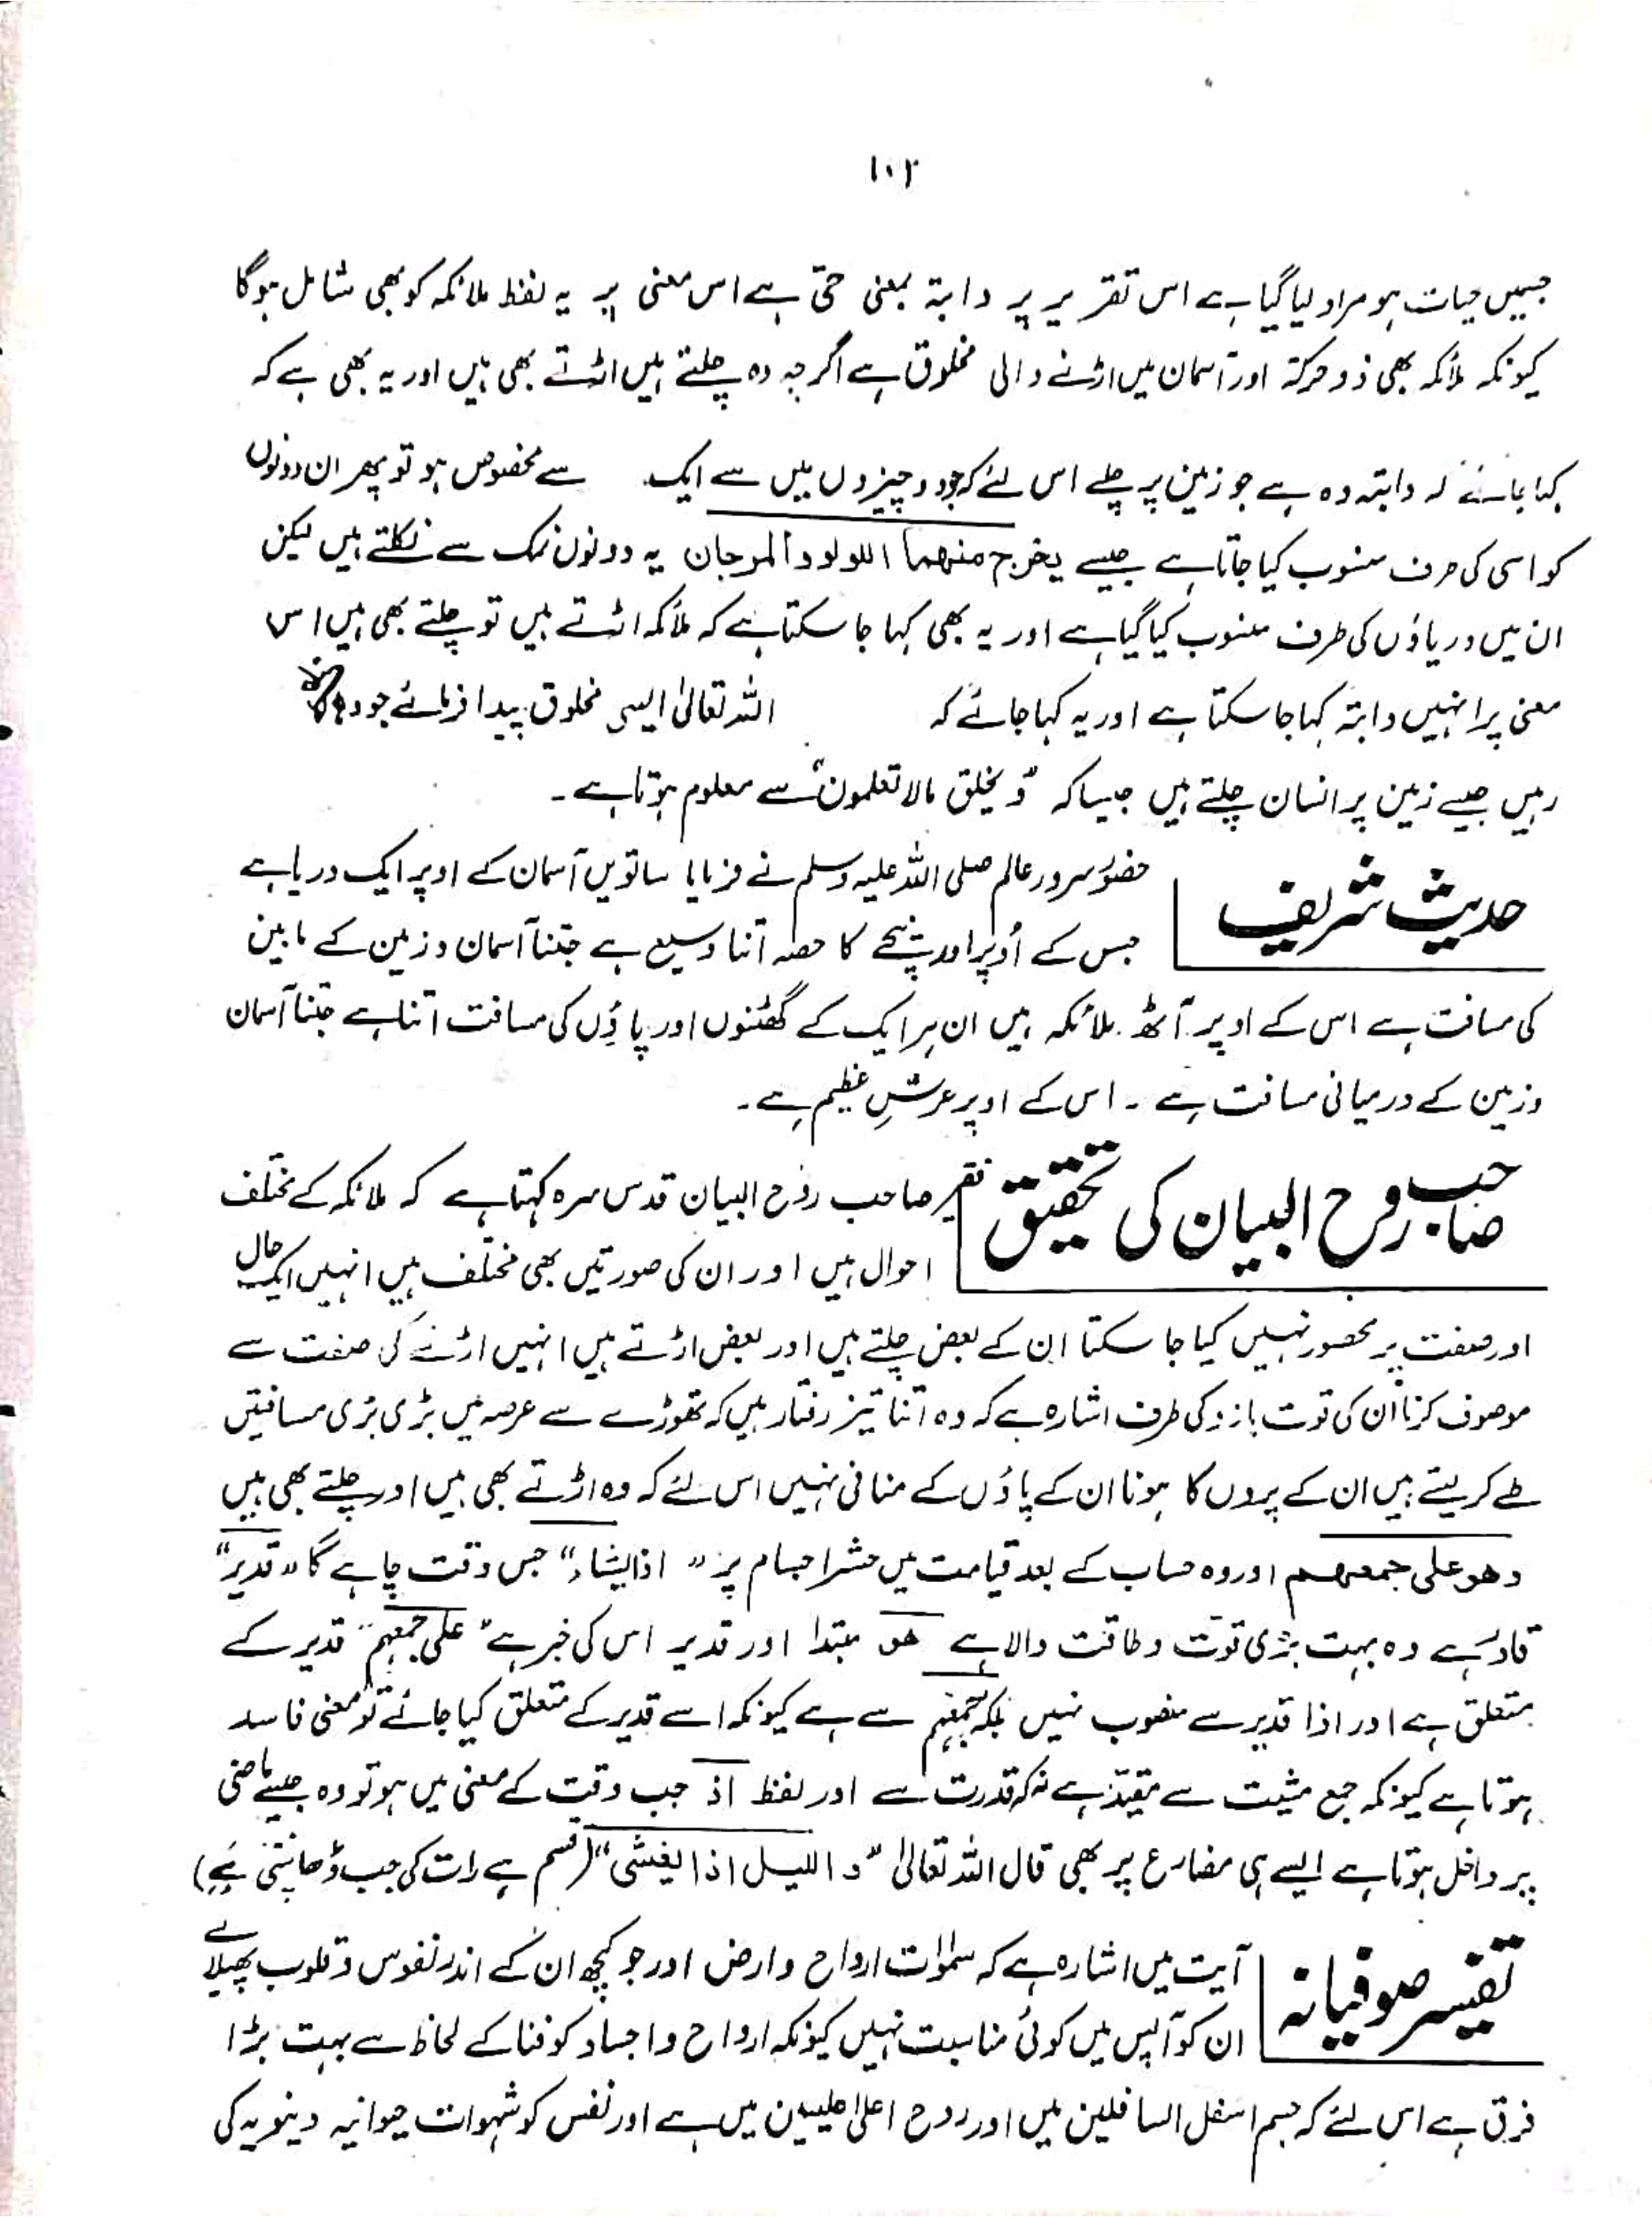 ۱۰۲
جسمیں حیات ہو مراد لیا گیا ہے اس تقریر پر دابۃ بمعنی حیّ ہے اس معنی پر یہ لفظ ملائکہ کو بھی شامل ہوگا
کیونکہ ملائکہ بھی ذو حرکۃ اور آسمان میں اڑنے والی مخلوق ہے اگرچہ وہ چلتے ہیں اڑتے بھی ہیں اور یہ بھی ہے کہ
کہا جائے کہ دابتہ وہ ہے جو زمین پر چلے اس لئے کہ جو دو چیزوں میں سے ایک سے مخصوص ہو تو پھر ان دونوں
کو اسی کی طرف منسوب کیا جاتا ہے جیسے یخرج منھما اللولو والمرجان یہ دونوں نمک سے نکلتے ہیں لیکن
ان میں دریاؤں کی طرف منسوب کیا گیا ہے اور یہ بھی کہا جا سکتا ہے کہ ملائکہ اڑتے ہیں تو چلتے بھی ہیں اس
معنی پر انہیں دابتہ کہا جا سکتا ہے اور یہ کہا جائے کہ اللہ تعالیٰ ایسی مخلوق پیدا فرمائے جو
رہیں جیسے زمین پر انسان چلتے ہیں جیسا کہ ”و یخلق مالا تعلمون“ سے معلوم ہوتا ہے ۔
حدیث شریف
حضور سرور عالم صلی اللہ علیہ وسلم نے فرمایا ساتویں آسمان کے اوپر ایک دریا ہے
جس کے اُوپر اور نیچے کا حصہ اتنا وسیع ہے جتنا آسمان و زمین کے مابین
کی مسافت ہے اس کے اوپر آٹھ ملائکہ ہیں ان ہر ایک کے گھٹنوں اور پاؤں کی مسافت اتنا ہے جتنا آسمان
و زمین کے درمیانی مسافت ہے ۔ اس کے اوپر عرشِ عظیم ہے ۔
صاحب روح البیان کی تحقیق
فقیر صاحب روح البیان قدس سرہ کہتا ہے کہ ملائکہ کے مختلف
احوال ہیں اور ان کی صورتیں بھی مختلف ہیں انہیں ایک حال
اور صفت پر محصور نہیں کیا جا سکتا ان کے بعض چلتے ہیں اور بعض اڑتے ہیں انہیں اڑنے کی صفت سے
موصوف کرنا ان کی قوت بازو کی طرف اشارہ ہے کہ وہ اتنا تیز رفتار ہیں کہ تھوڑے سے عرصہ میں بڑی بڑی مسافتیں
طے کر لیتے ہیں ان کے پروں کا ہونا ان کے پاؤں کے منافی نہیں اس لئے کہ وہ اڑتے بھی ہیں اور چلتے بھی ہیں
وھو علی جمعھم اور وہ حساب کے بعد قیامت میں حشر اجسام پر ” اذا یشاء“ جس وقت چاہے گا ”قدیر“
قادر ہے وہ بہت بڑی قوت و طاقت والا ہے ھو مبتدا اور قدیر اس کی خبر ہے ”علی جمعہم“ قدیر کے
متعلق ہے اور اذا قدیر سے منصوب نہیں بلکہ جمعہم سے ہے کیونکہ اسے قدیر کے متعلق کیا جائے تو معنی فاسد
ہوتا ہے کیونکہ جمع مشیت سے مقید ہے نہ کہ قدرت سے اور لفظ اذ جب وقت کے معنی میں ہو تو وہ جیسے ماضی
پر داخل ہوتا ہے ایسے ہی مضارع پر بھی قال اللہ تعالیٰ ”و اللیل اذا یغشی“ (قسم ہے رات کی جب ڈھانپتی ہے)
تفسیر صوفیانہ
آیت میں اشارہ ہے کہ سمٰوات ارواح و ارض اور جو کچھ ان کے اندر نفوس و قلوب پھیلائے
ان کو آپس میں کوئی مناسبت نہیں کیونکہ ارواح و اجساد کو فنا کے لحاظ سے بہت بڑا
فرق ہے اس لئے کہ جسم اسفل السافلین میں اور روح اعلیٰ علیین میں ہے اور نفس کو شہوات حیوانیہ دینویہ کی